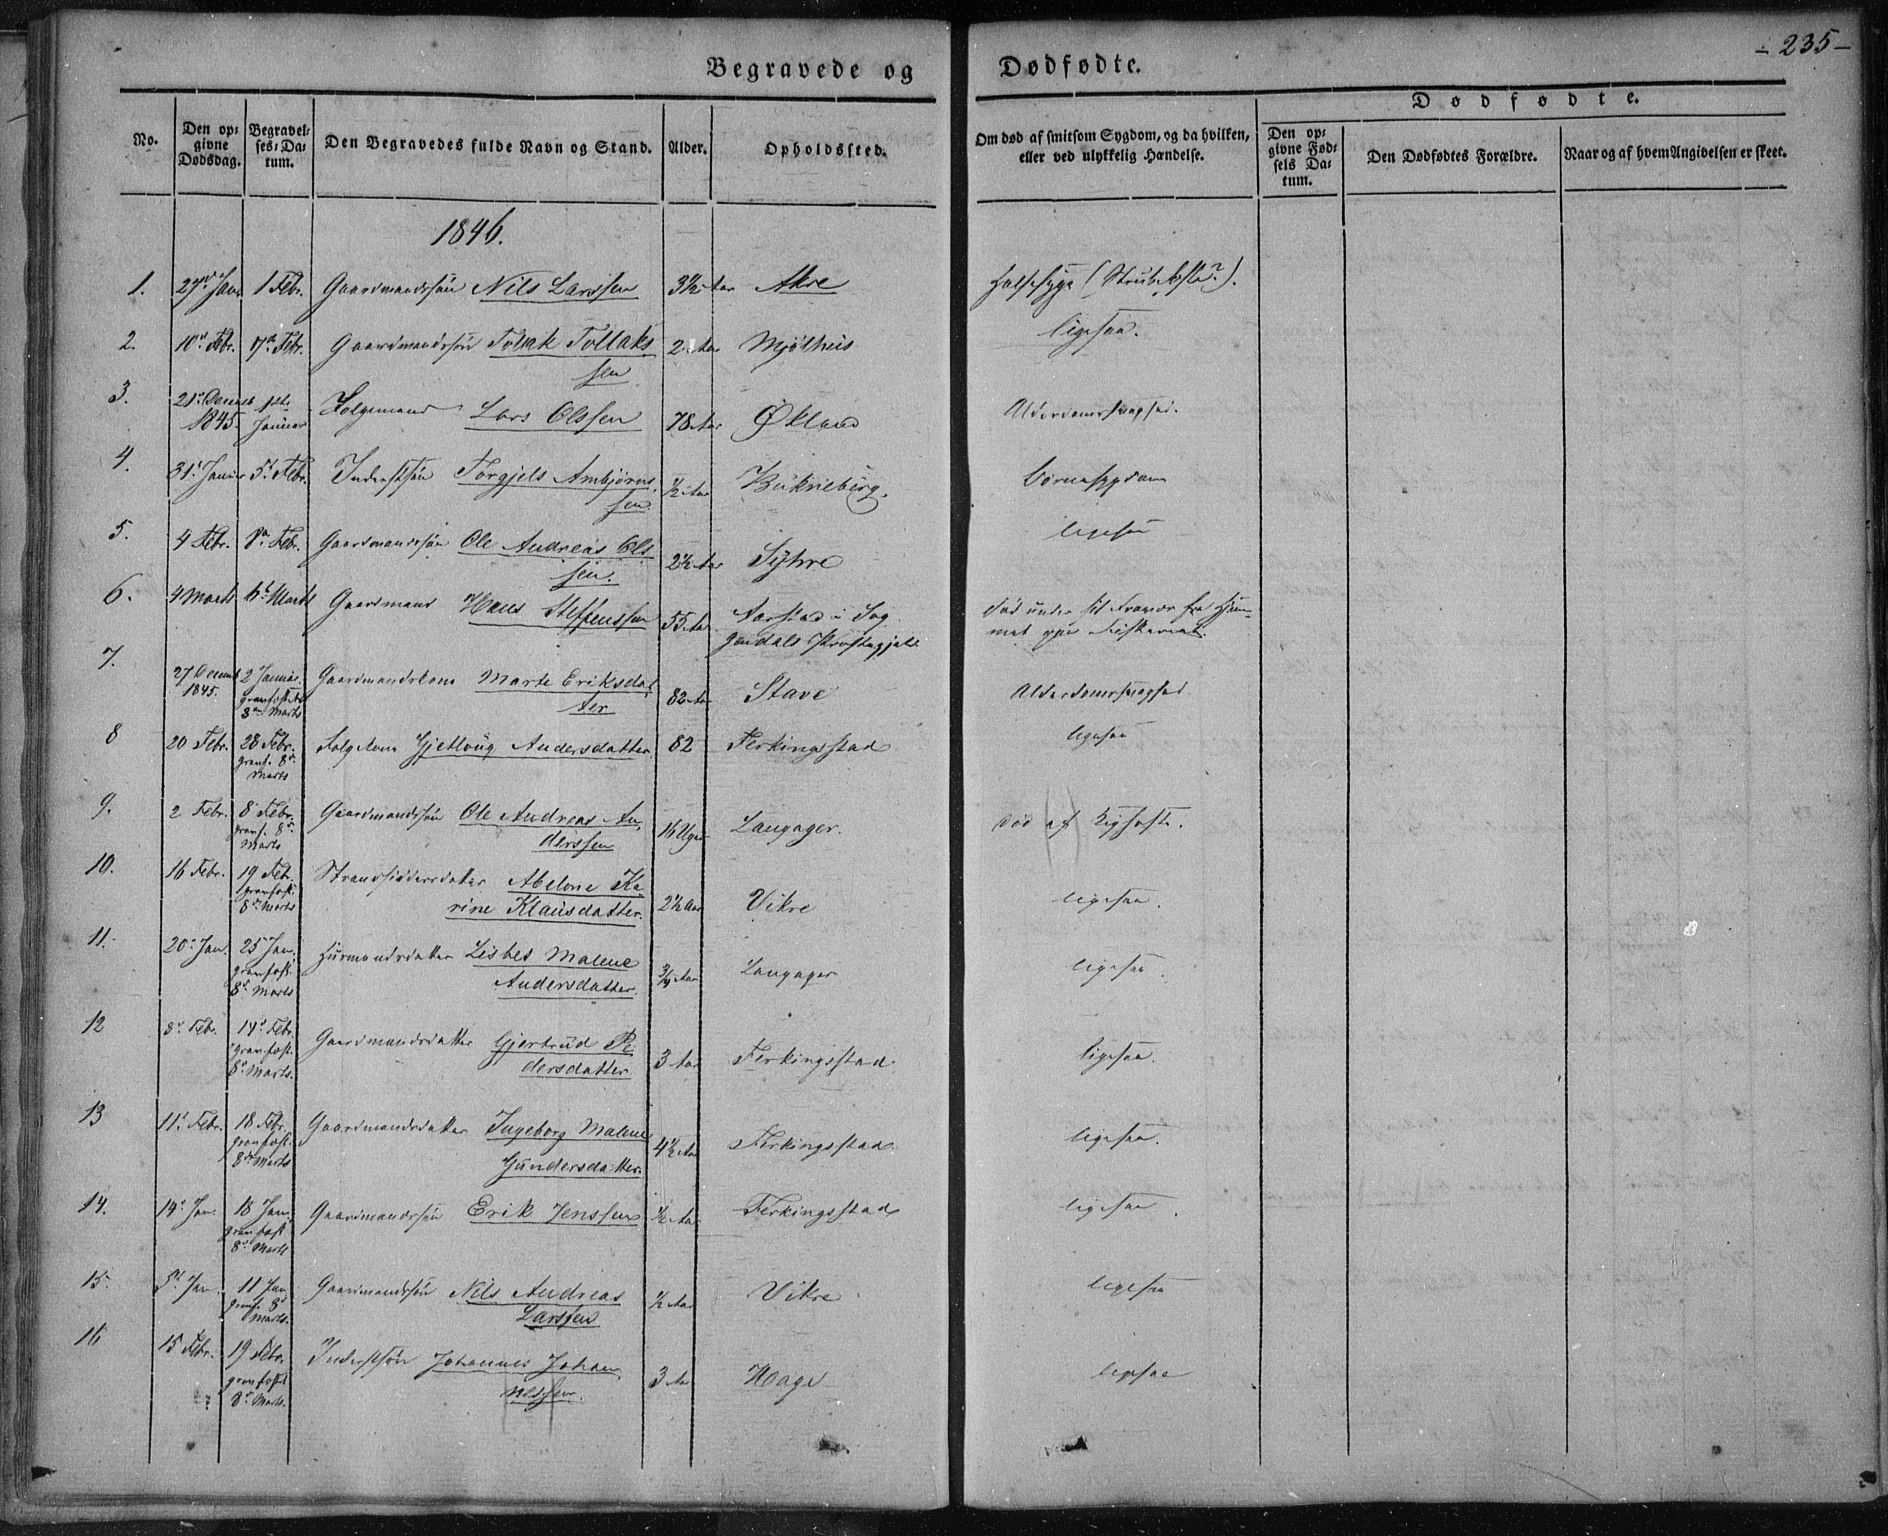 - 235 -
Begravede og Dødfødte.
No.
Den opgivne Dødsdag.
Begravelses-Datum.
Den Begravedes fulde Navn og Stand.
Alder.
Opholdssted.
Om død af smitsom Sygdom, og da hvilken, eller ved ulykkelig Hændelse.
Dødfødte.
Den opgivne Fødsels Datum.
Den Dødfødtes Forældre.
Naar og af hvem Angivelsen er skeet.
1846.
1. 27 Jan. 1 Febr. Gaardmandssøn Nils Larssen 3½ Aar Akre Halssyge (Strubehoste?).
2. 10 Febr. 17 Febr. Gaardmandssøn Tollak Tollaks
sen 2 Aar Mjølheis ligesaa.
3. 21 Decemb 1845. 1ste Januar Lars Olssen 78 Aar Økland Alderdomssvaghed.
4. 31 Januar 5 Febr. Inderstsøn Torgjels Ambjørns
sen ½ Aar Børnesygdom
5. 4 Febr. 8 Febr. Gaardmandssøn Ole Andreas Ols
sen. 2½ Aar Syhre ligesaa
6. 4 Marts 6 Marts Gaardmand Hans Steffenssen 55 Aar Aarstad i Sog
gendals Præstegjeld
Død under sit Fravær fra Hjem
met paa Fiskeriet.
7. 27 Decemb 1845. 2 Januar
8 Marts Gaardmandskone Marte Eriksdat
ter 82 Aar Stave Alderdomssvaghed
8 20 Febr. 28 Febr.
8 Marts Gjetloug Andersdatter 82 Ferkingsstad ligesaa
9. 2 Febr. 8 Febr.
8 Marts Gaardmandssøn Ole Andreas An
derssen 16 Uger Langager. Død af Kighoste.
10. 16 Febr. 19 Febr.
8 Marts Strandsiddersdatter Abelone Ka
rine Klausdatter. 2½ Aar Vikre ligesaa.
11. 20 Jan. 25 Jan.
8 Marts Huusmandsdatter Lisbes Malene
Andersdatter. ¾ Aar Langager ligesaa.
12 8 Febr. 14 Febr.
8 Marts. Gaardmandsdatter Gjertrud Pe
dersdatter 3 Aar Ferkingsstad ligesaa.
13 11 Febr. 18 Febr.
8 Marts Gaardmandsdatter Ingeborg Malene
Gundersdatter. 4½ Aar Ferkingsstad. ligesaa.
14. 14 Jan. 18 Jan.
8 Marts Gaardmandssøn Erik Jenssen ½ Aar Ferkingsstad ligesaa.
15 5 Jan. 11 Jan
8 Marts. Gaardmandssøn Nils Andreas
Larssen ½ Aar Vikre ligesaa
16 15 Febr. 19 Febr.
8 Marts. Inderstsøn Johannes Johan
nessen. 3 Aar Hage ligesaa